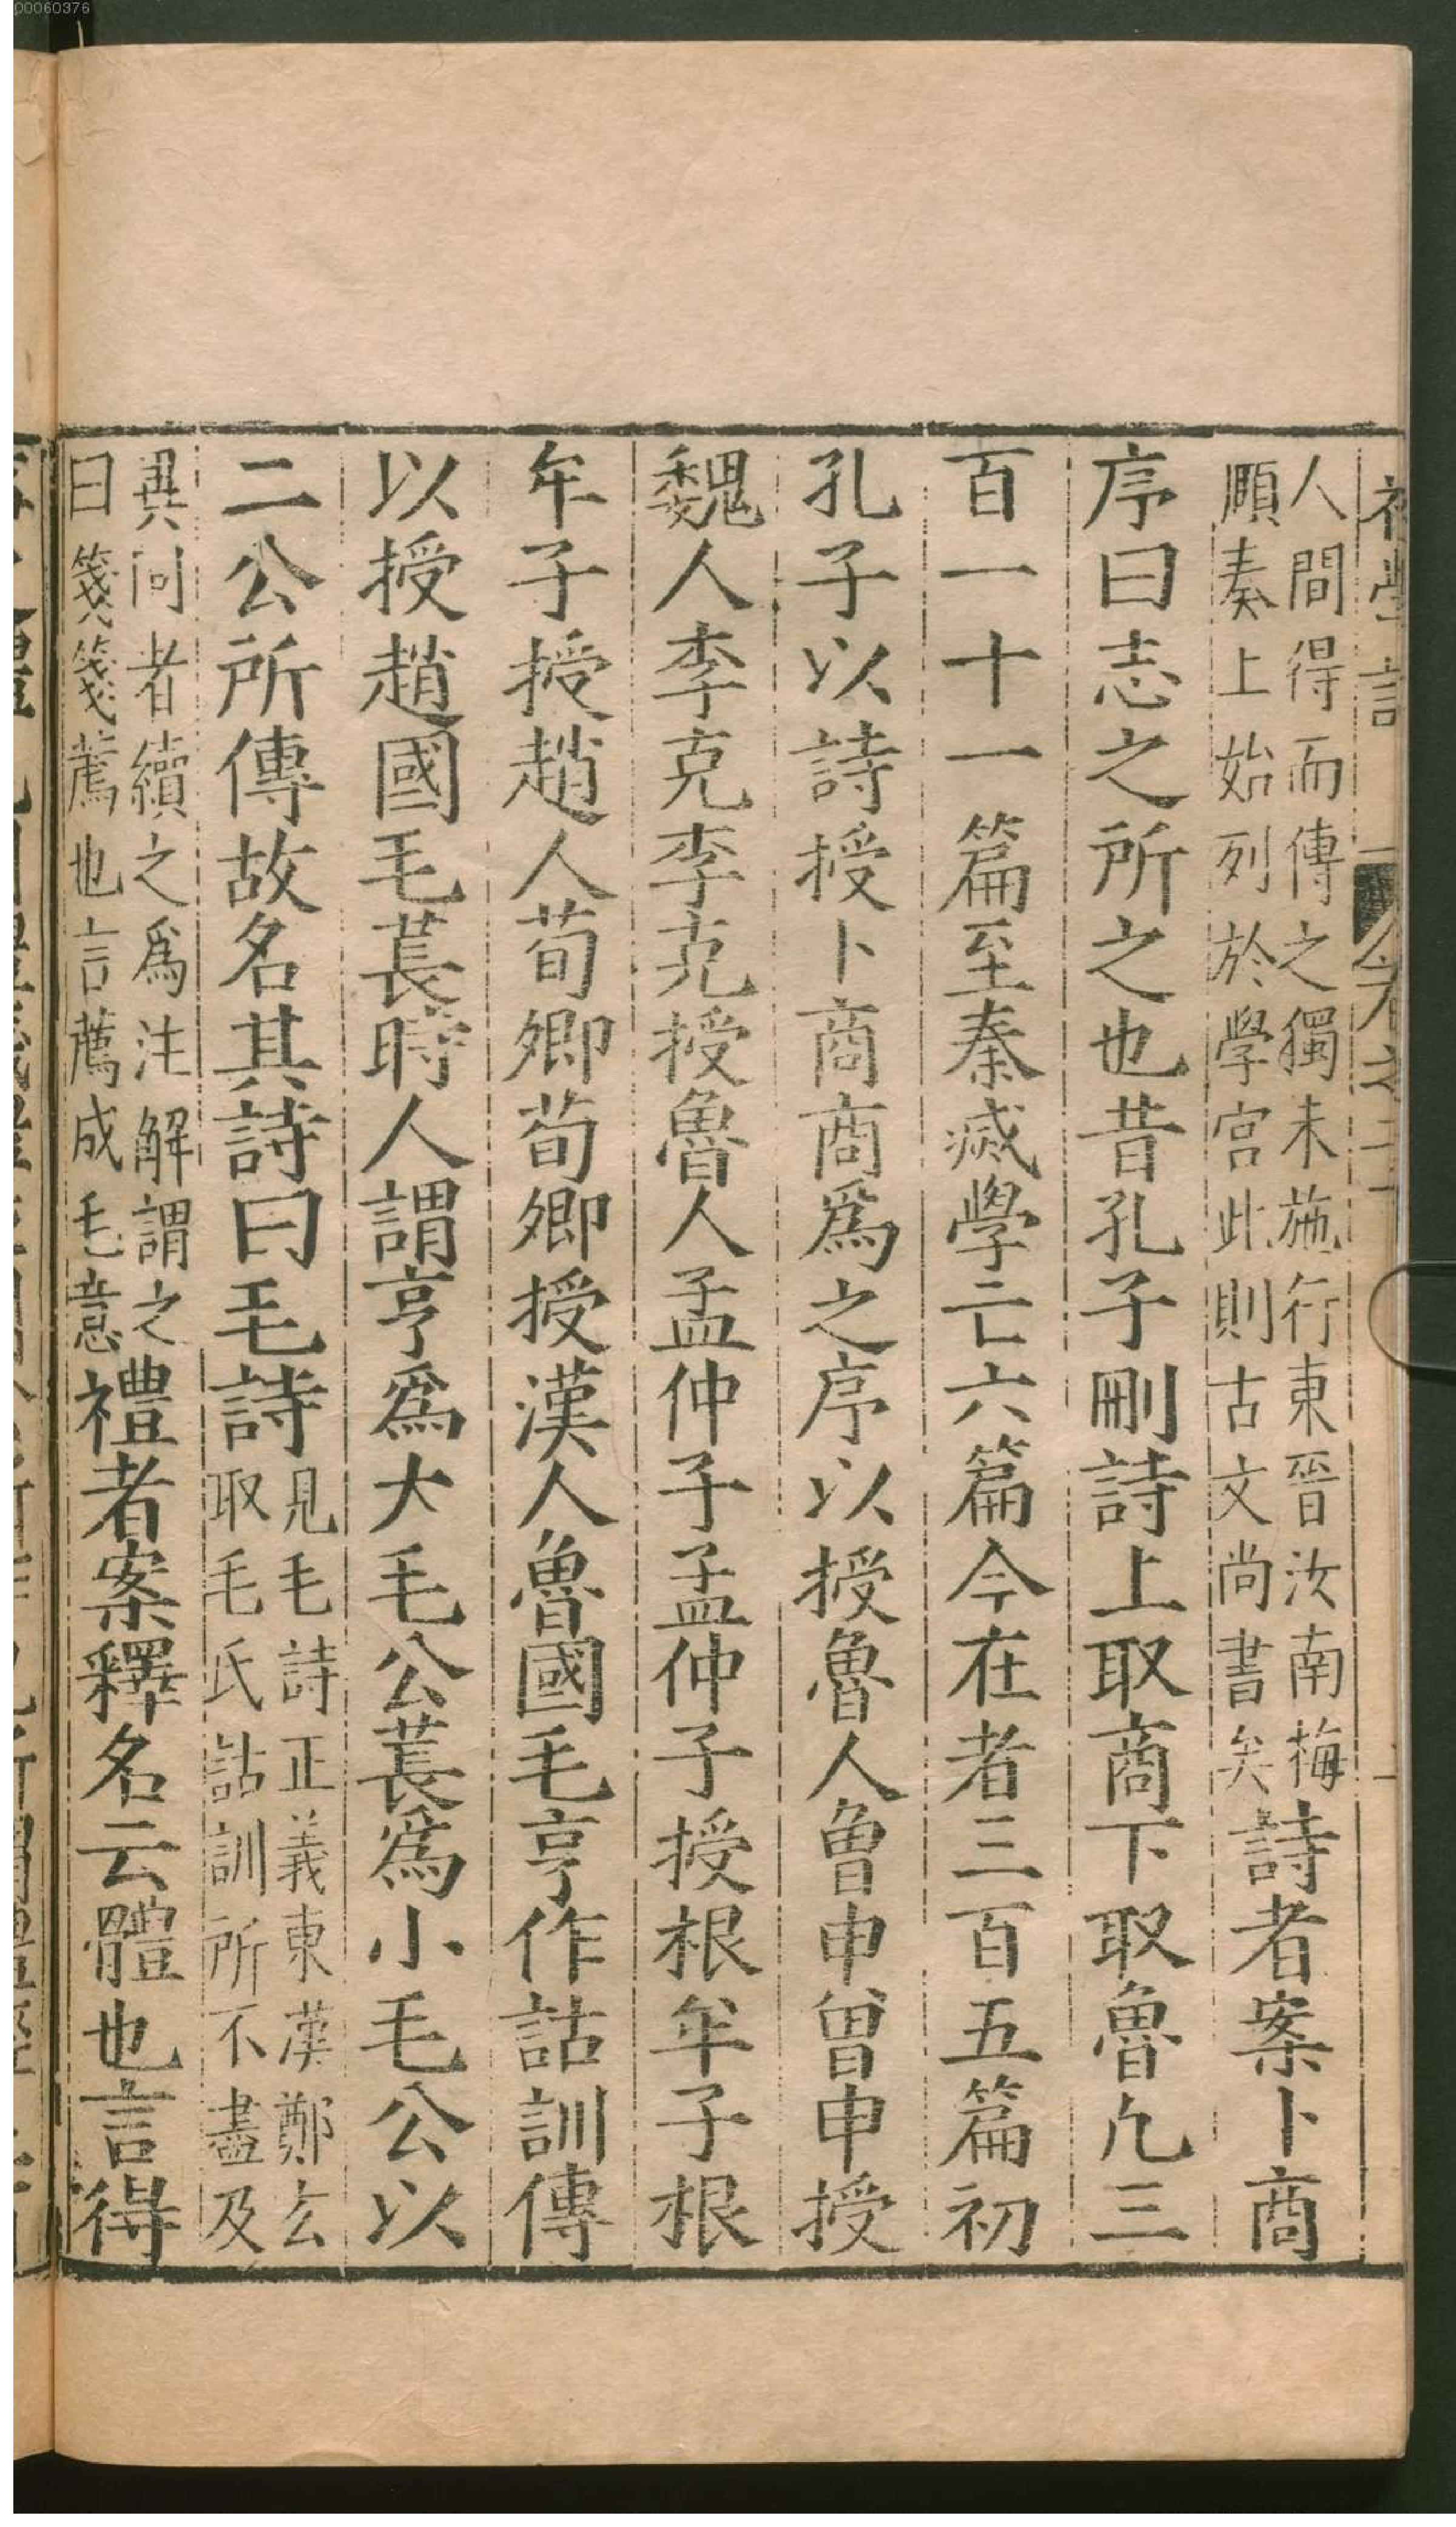 00060376
人間得而傳之獨未施行東晉汝南梅
頥奏上始列於學宫此則古文尚書矣詩者案卜商
序曰志之所之也昔孔子刪詩上取商下取魯凣三
百一十一篇至秦滅學亡六篇今在者三百五篇初
孔子以詩授卜商商爲之序以授魯人曾申曾申授
魏人李克李克授魯人孟仲子孟仲子授根牟子根
牟子授趙人荀卿荀卿授漢人魯國毛亨作詁訓傳
以授趙國毛萇時人謂亨爲大毛公萇爲小毛公以
二公所傳故名其詩曰毛詩見毛詩正義東漢鄭玄
取毛氏詁訓所不盡及
異同者續之爲注解謂之
曰箋箋薦也言薦成毛意禮者案釋名云體也言得